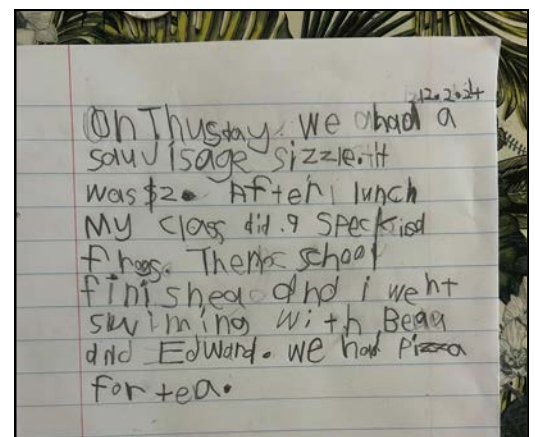 212.2.24
On Thusday. We had a
sauvisage sizzle. It
was $2. After lunch
My class did .9 Speckled
frogs. Then school
finished and i went
swiming with Beau
and Edward. we had Pizza
for tea.